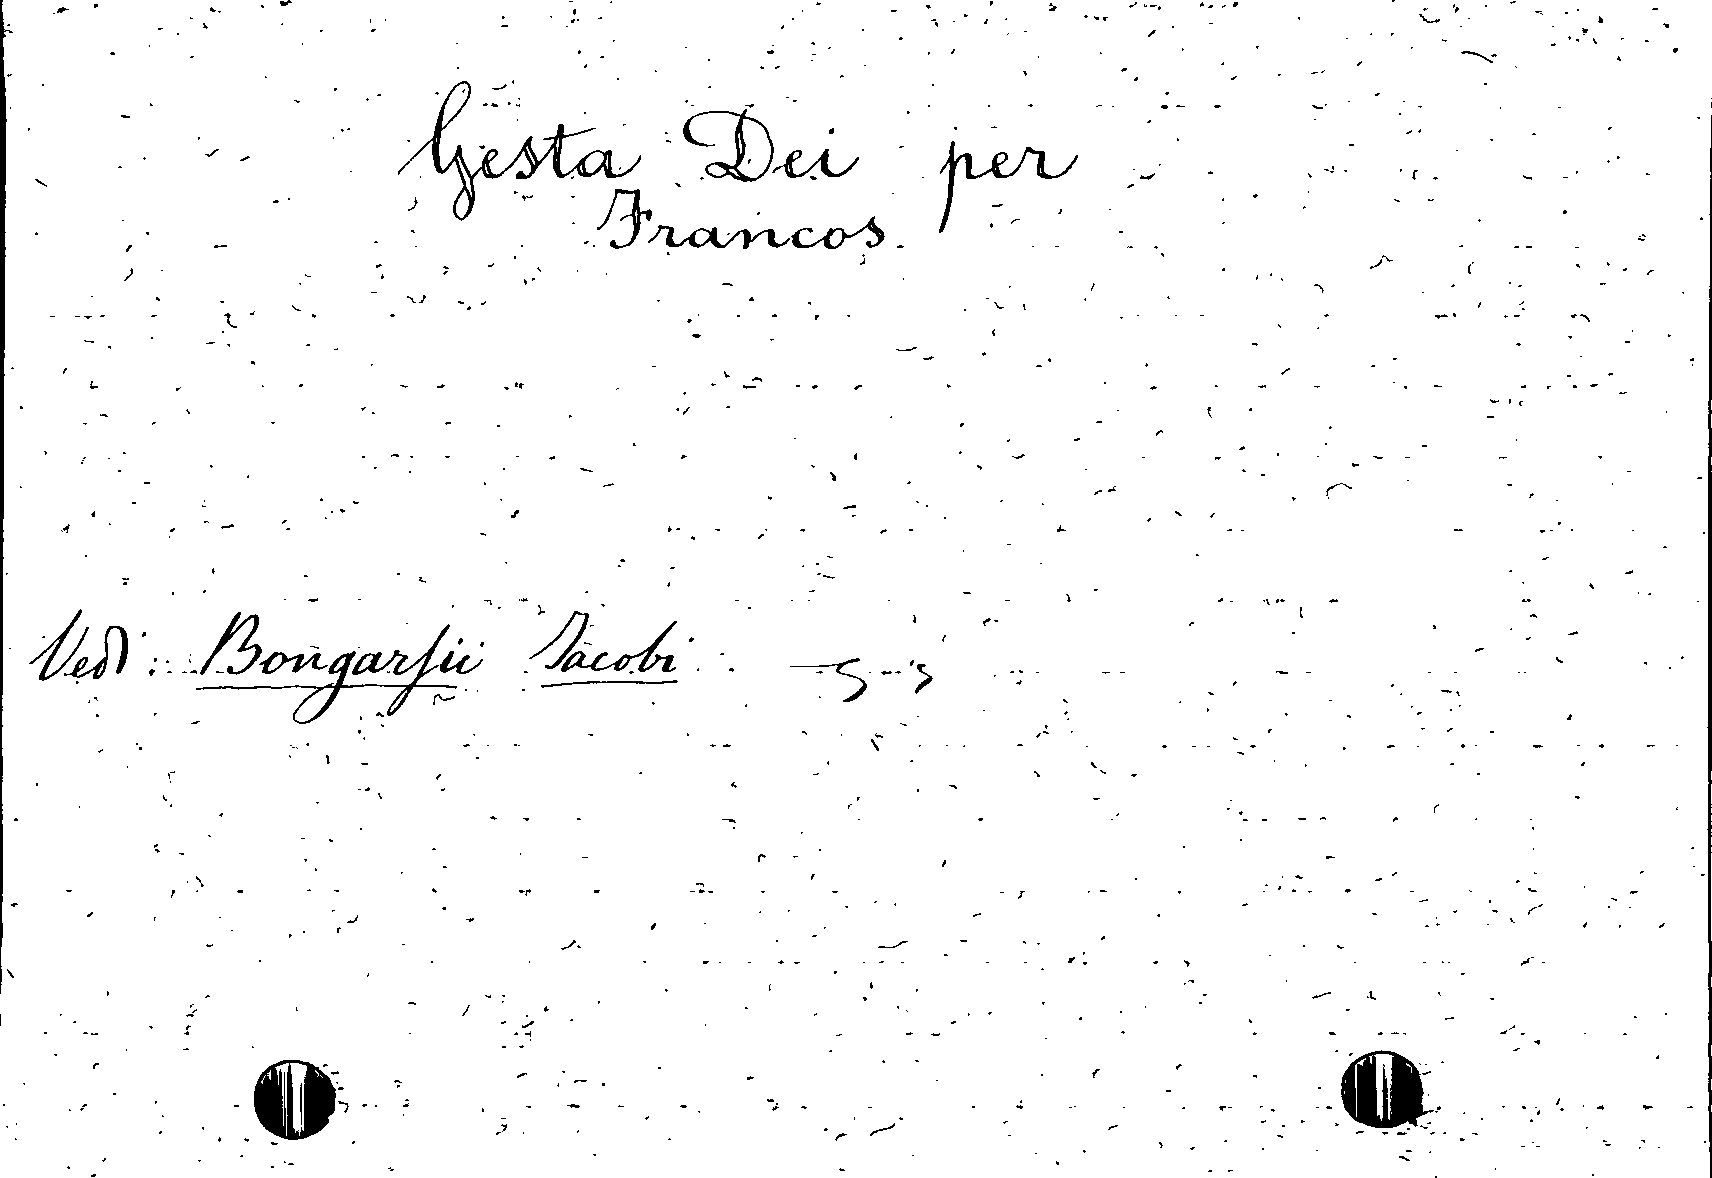 Gesta Dei per
Francos
Vedi: Bongarsii Jacobi